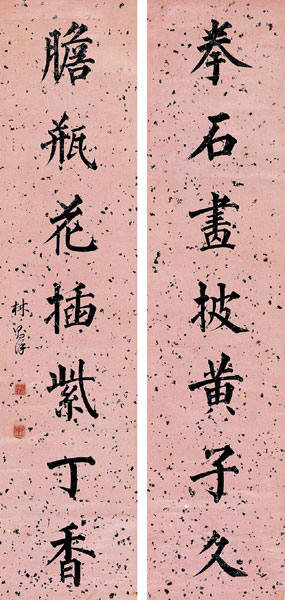 拳石畫披黄子久
膽瓶花插紫丁香
林